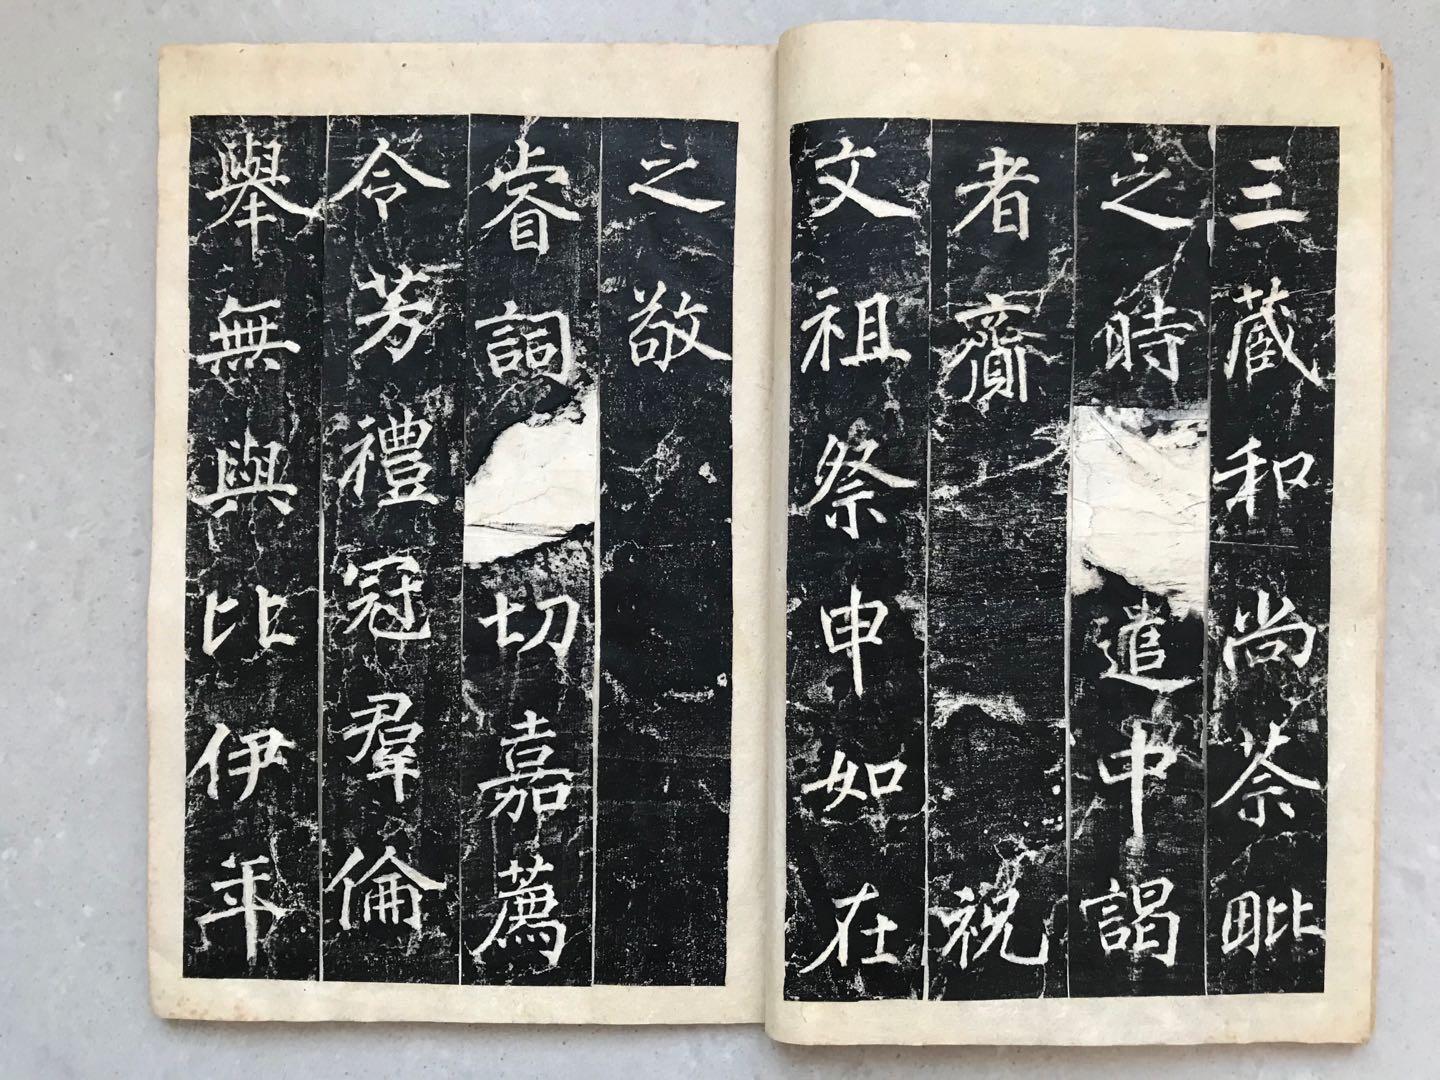 三藏和尚荼毗
之時遣中謁
者齎祝
文祖祭申如在
之敬
睿詞切嘉薦
令芳禮冠羣倫
舉無與比伊年